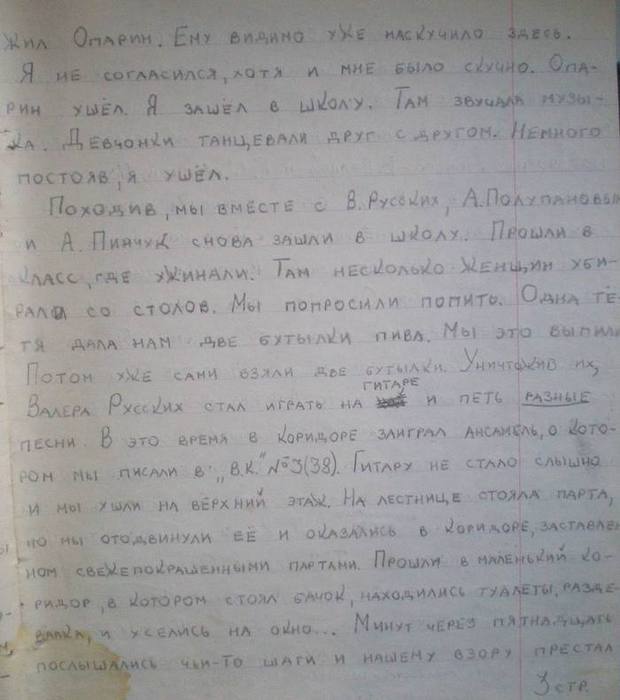 жил Опарин. Ему видимо уже наскучило здесь.
Я не согласился, хотя и мне было скучно. Опа-
рин ушёл. Я зашёл в школу. Там звучала музы-
ка. Девчонки танцевали друг с другом. Немного
постояв, я ушёл.
Походив, мы вместе с В. Русских, А. Полупановым
и А. Пинчук снова зашли в школу. Прошли в
класс, где ужинали. Там несколько женщин уби-
рала со столов. Мы попросили попить. Одна тё-
тя дала нам две бутылки пива. Мы это выпили
Потом уже сами взяли две бутылки. Уничтожив их,
Валера Русских стал играть на гитаре и петь разные
песни. В это время в коридоре заиграл ансамбль, о кото-
ром мы писали в „В.К." №3(38). Гитару не стало слышно
и мы ушли на верхний этаж. На лестнице стояла парта,
но мы отодвинули её и оказались в коридоре, заставлен
ном свежепокрашенными партами. Прошли в маленький ко-
ридор, в котором стоял бачок, находились туалеты, разде-
валка, и уселись на окно... Минут через пятнадцать
послышались чьи-то шаги и нашему взору престал-
3 стр.